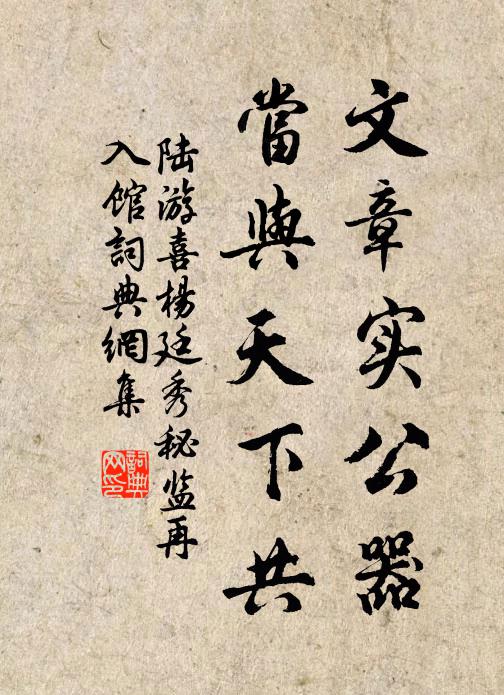 文章实公器
當與天下共
陆游喜楊廷秀秘监再
入馆詞典網集
詞典
网印